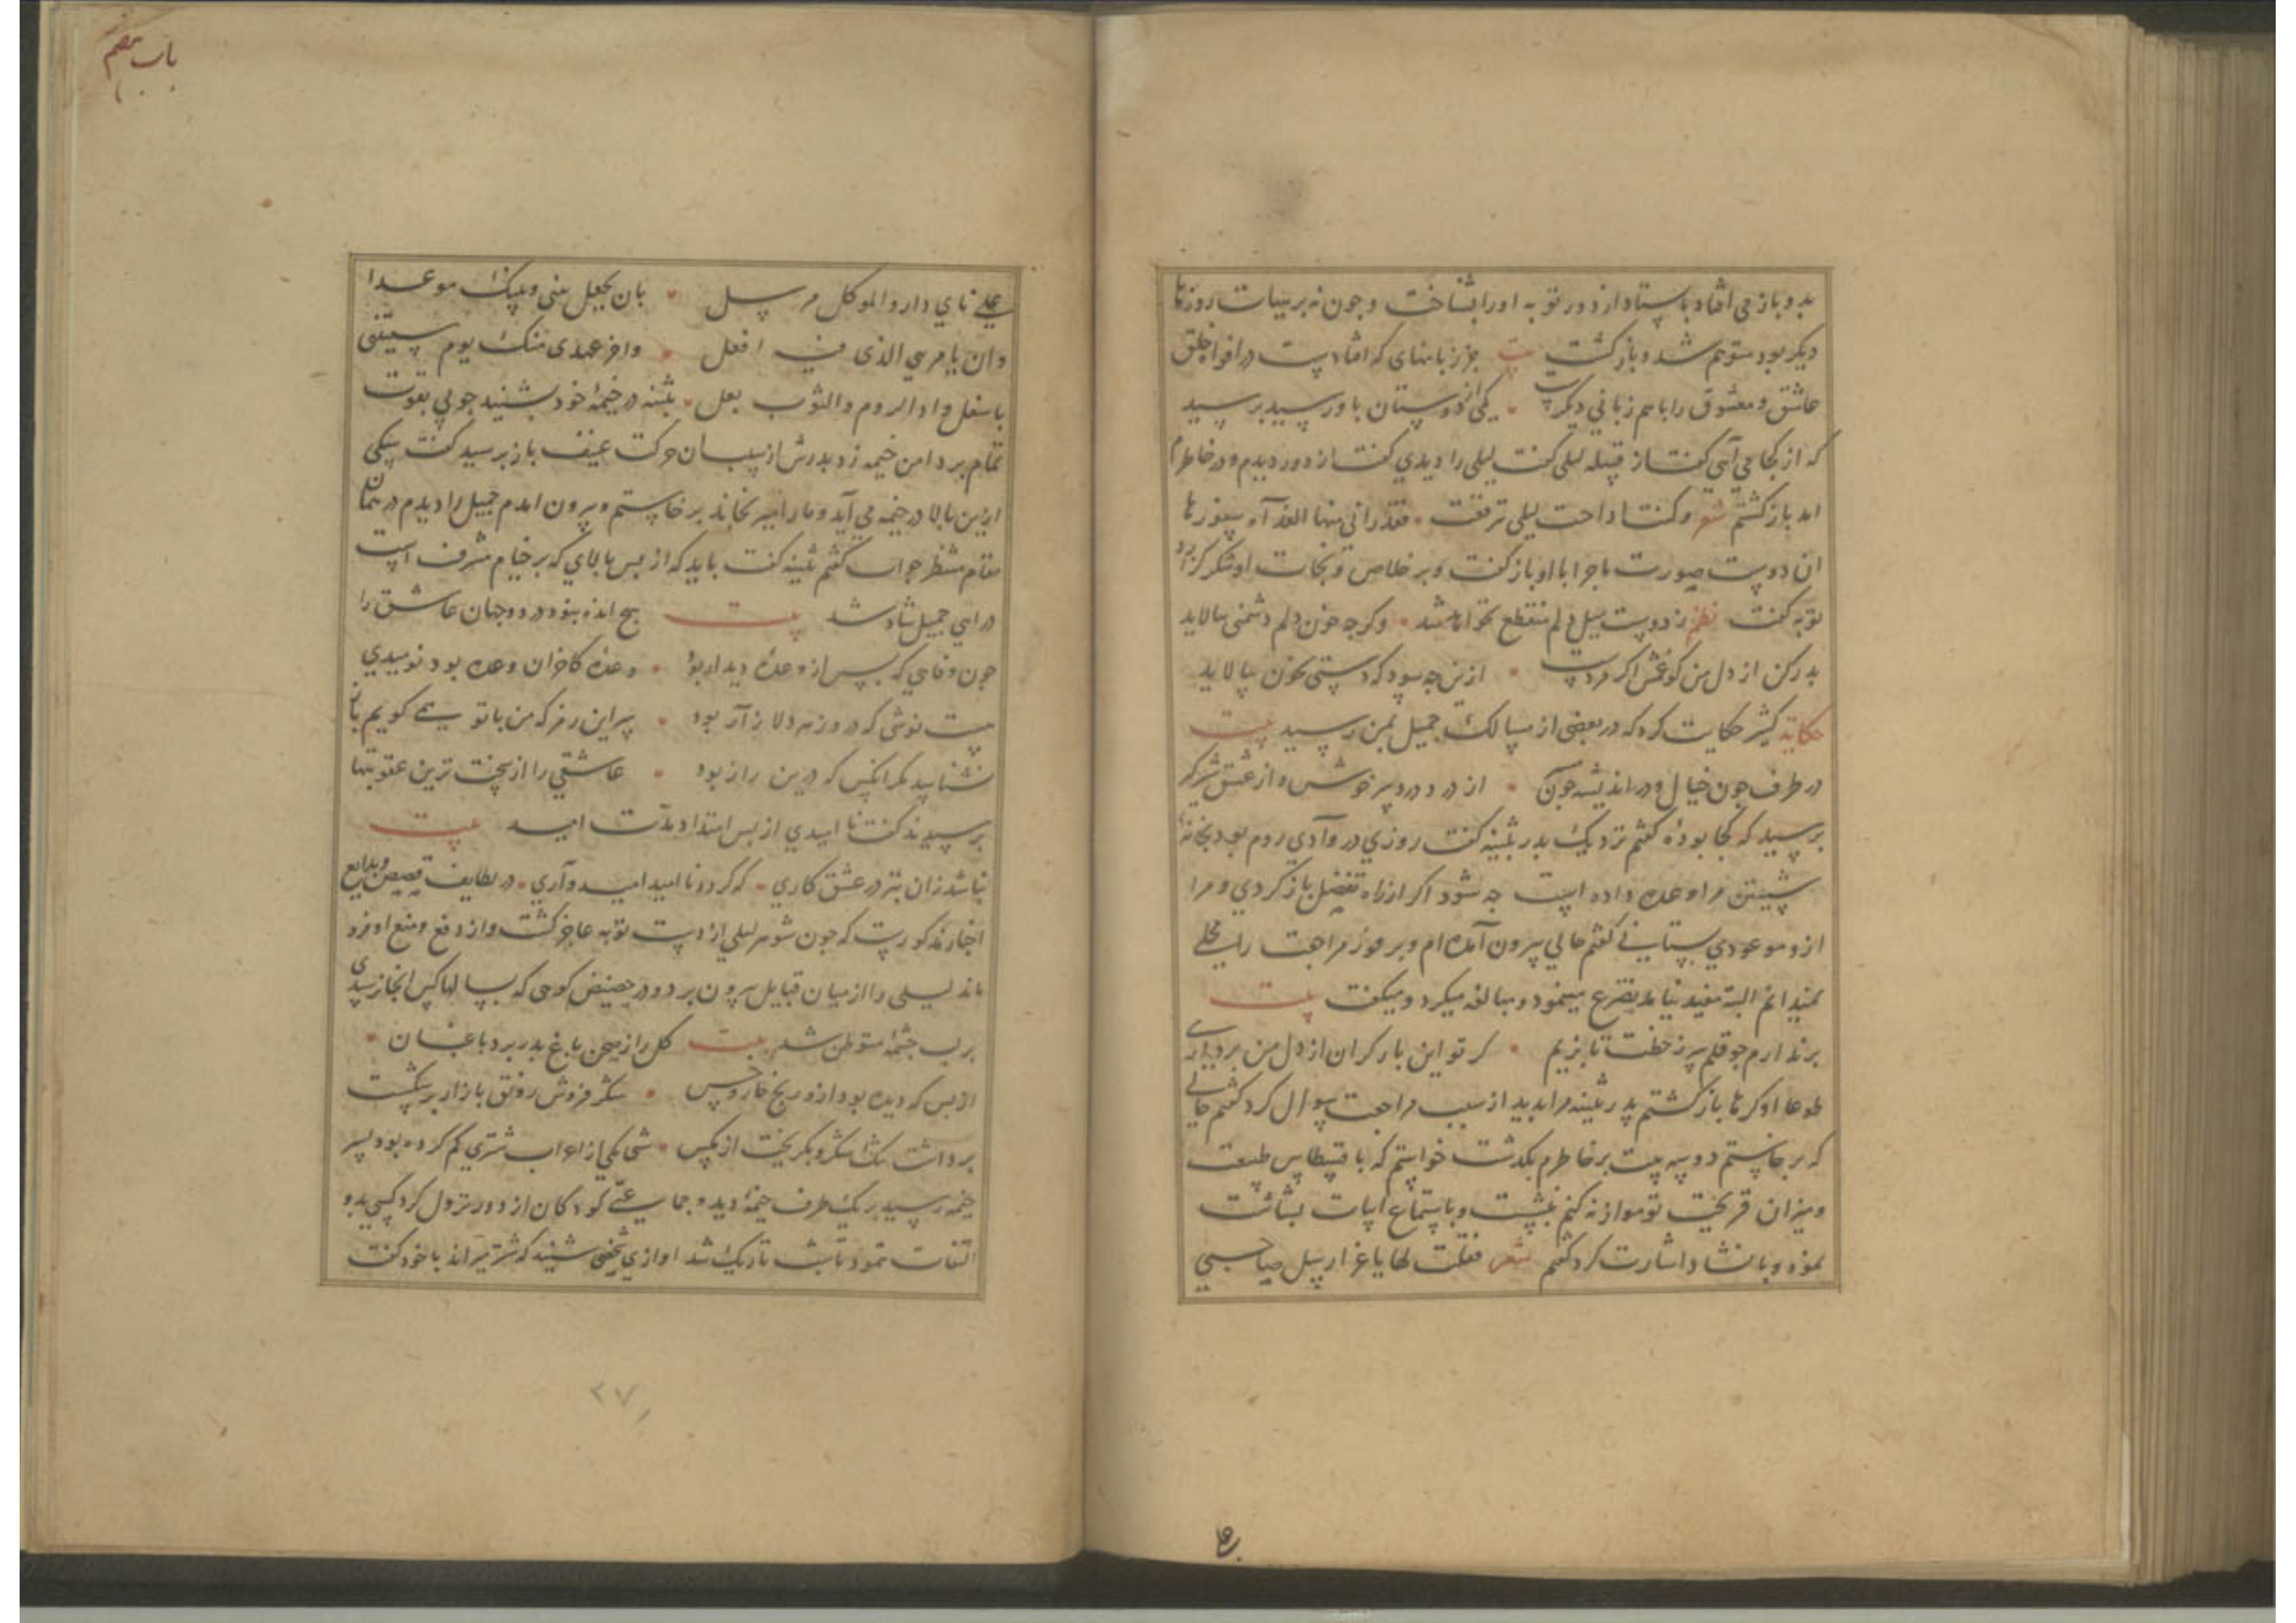 بدو باز می افتاد باستاد از دور توبه او را بشناخت و چون نه بر هیات روزها
دیکر بود متوهم شد و باز کشت بیت جز زبانهای که افتادست در افواه خلق
عاشق و معشوق را با هم زبانی دیکرست یکی از دوستان با و رسید برسید
که از کجا می آئی کفت از قبیله لیلی کفت لیلی را دیدی کفت از دور دیدم و در خاطرم
امد باز کشتم شعر و کنت اذا جئت لیلی تبرقعت فقد رابنی منها الغداة سفورها
ان دوست صورت ماجرا با او باز کفت و بر خلاص و نجات او شکر کرد
توبه کفت نظم ز دوست میل دلم منقطع نخواهد شد وکرچه خون دلم دشمنی بالاید
بدر کن از دل من کو غمش اکر مردست ازین چه سود که دستی بخون بیالاید
حکایة کثیر حکایت کرد که در بعضی از مسالک جمیل بمن رسید بیت
در طرف چون خیال و در اندیشه چون از درد در وبر خوش و از عشق
برسید که کجا بودهٔ کفتم نزدیک بدر بثینه کفت روزی در وادی روم بود
شستن مرا وعده داده است چه شود اکر از راه تفضل باز کردی و مرا
ازو موعودی بستانی کفتم حالی بیرون آمده ام و بر فور مراجعت را محلی
نمیدانم البته مفید نیامد تضرع مینمود و مبالغه میکرد و میکفت بیت
برندارم چو قلم سر ز خطت تا بزیم کر تو این بار کران از دل من برداری
طوعا او کرها باز کشتم پدر بثینه مرا بدید از سبب مراجعت سوال کرد کفتم حالی
که برخاستم دو سه بیت بر خاطرم بکذشت خواستم که با قسطاس طبیعت
و میزان قریحت تو موازنه کنم بنشست و باستماع ابیات بشاشت
نمود و بانشاد اشارت کرد کفتم شعر فقلت لها یا عز ارسل صاحبی
علی نای دار والموکل مرسل بان تجعلی بینی و بینک موعدا
وان تامرینی الذی فیه افعل واخر عهدی منک یوم لقیتنی
باسفل وادالروم والثوب یغسل بثینه در خیمهٔ خود بشنید چوبی بقوت
تمام بر دامن خیمه زد بدرش از سبب ان حرکت عنیف باز برسید کفت سکی
ازین بالا در خیمه می آید و ما را می برخاستم و بیرون امدم جمیل را دیدم در همان
مقام منتظر جواب کفتم بثینه کفت باید که از بس بالای که بر خیام مشرف است
درایی جمیل شاد شد بیت هیچ اندوه نبود در دو جهان عاشق را
چون وفایی که بس از وعدهٔ دیدار بود وعده کاخران وعده بود نومیدی
نوشی که در وزهر دلازار بود سر این رمز که من با تو همی کویم باز
نشناسد مکر انکس که درین راز بود عاشقی را از سخت ترین عقوبتها
برسیدند کفت نا امیدی از بس امتداد مدت امید بیت
نباشد زان بتر در عشق کاری که کردد نا امید امیدواری در لطایف قصص و بدایع
اخبار مذکورست که چون شوهر لیلی از دست توبه عاجز کشت و از دفع و منع او فرو
ماند لیلی را از میان قبایل بیرون برد و در حضیض کوهی که بسالها کس انجا نرسیدی
بر لب چشمهٔ متوطن شد بیت کل را ز صحن باغ بدر برد باغبان
از بس که دیده بود ازو رنج خار و خس شکر فروش رونق بازار بر شکست
برداشت تنک شکر و بکریخت از مکس شبی یکی از اعراب شتری کم کرده بود بسر
خیمه رسید بر یک طرف خیمهٔ دید و جماعتی کودکان از دور نزول کرد کسی بدو
التفات ننمود تا شب تاریک شد اوازی شخصی شنید که شتر میراند با خود کفت
۲۷